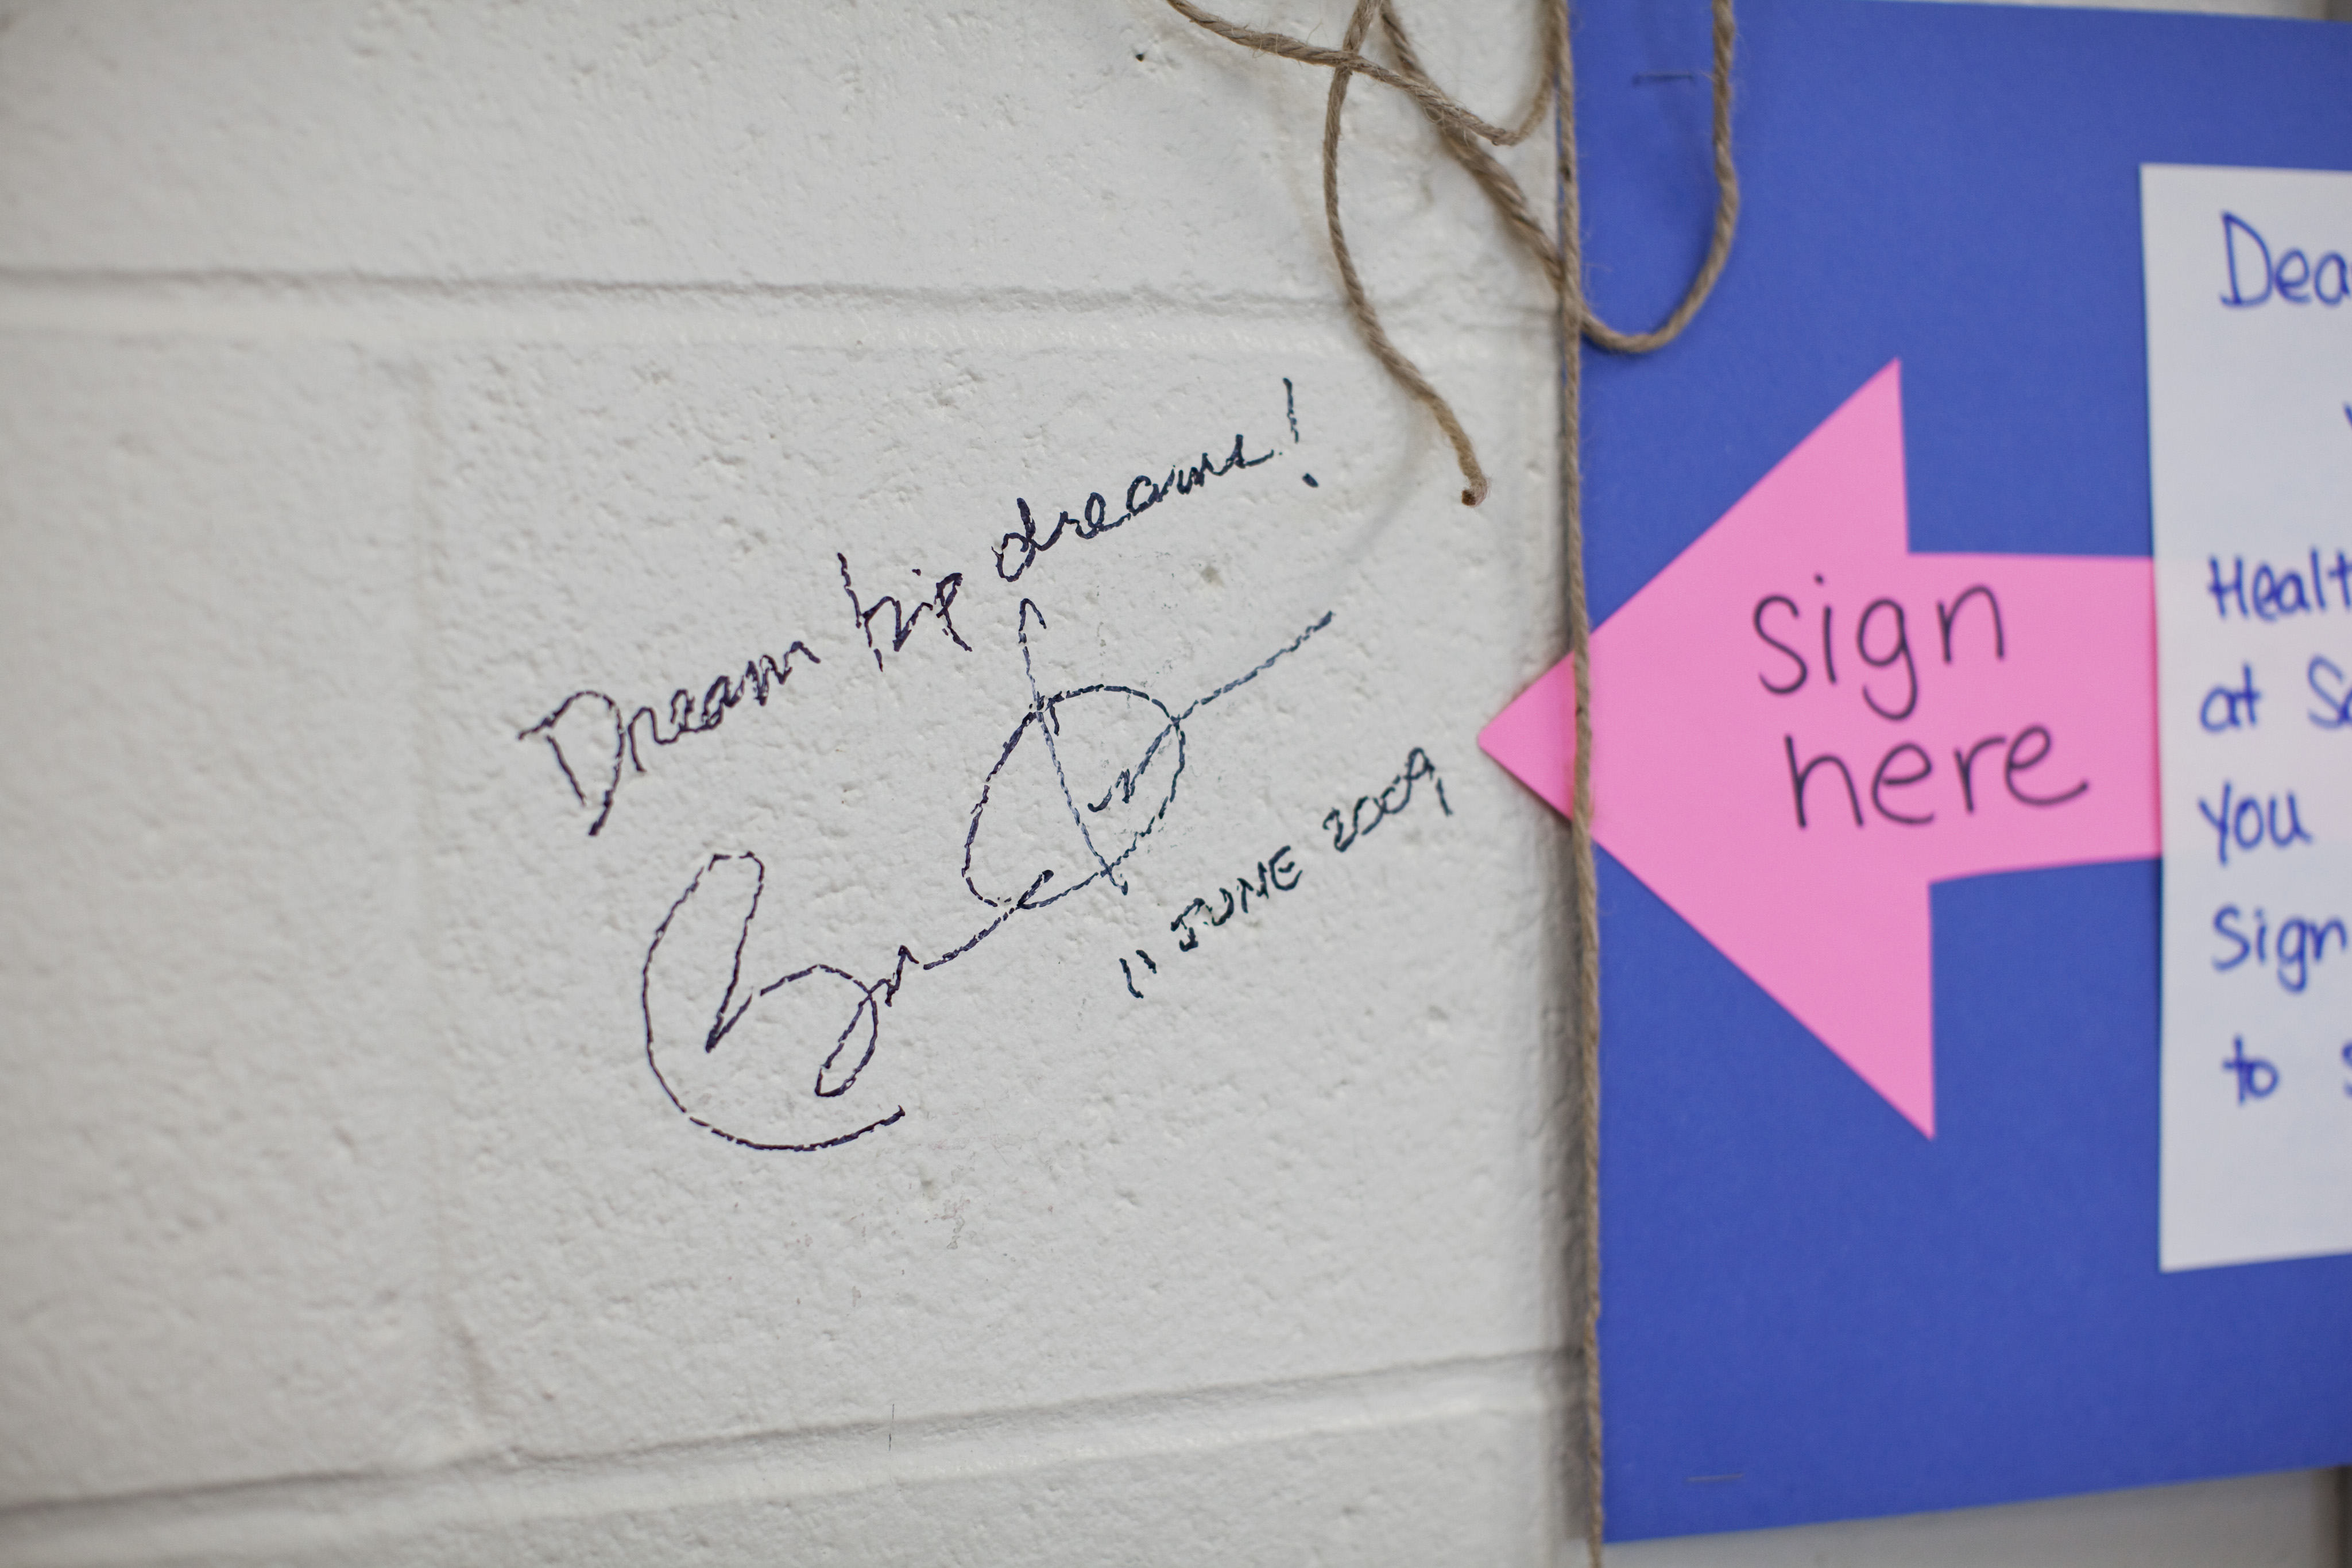 Dream big dreams!
11 JUNE 2009
sign
here
Dea
Healt
at S
You
Sign
to